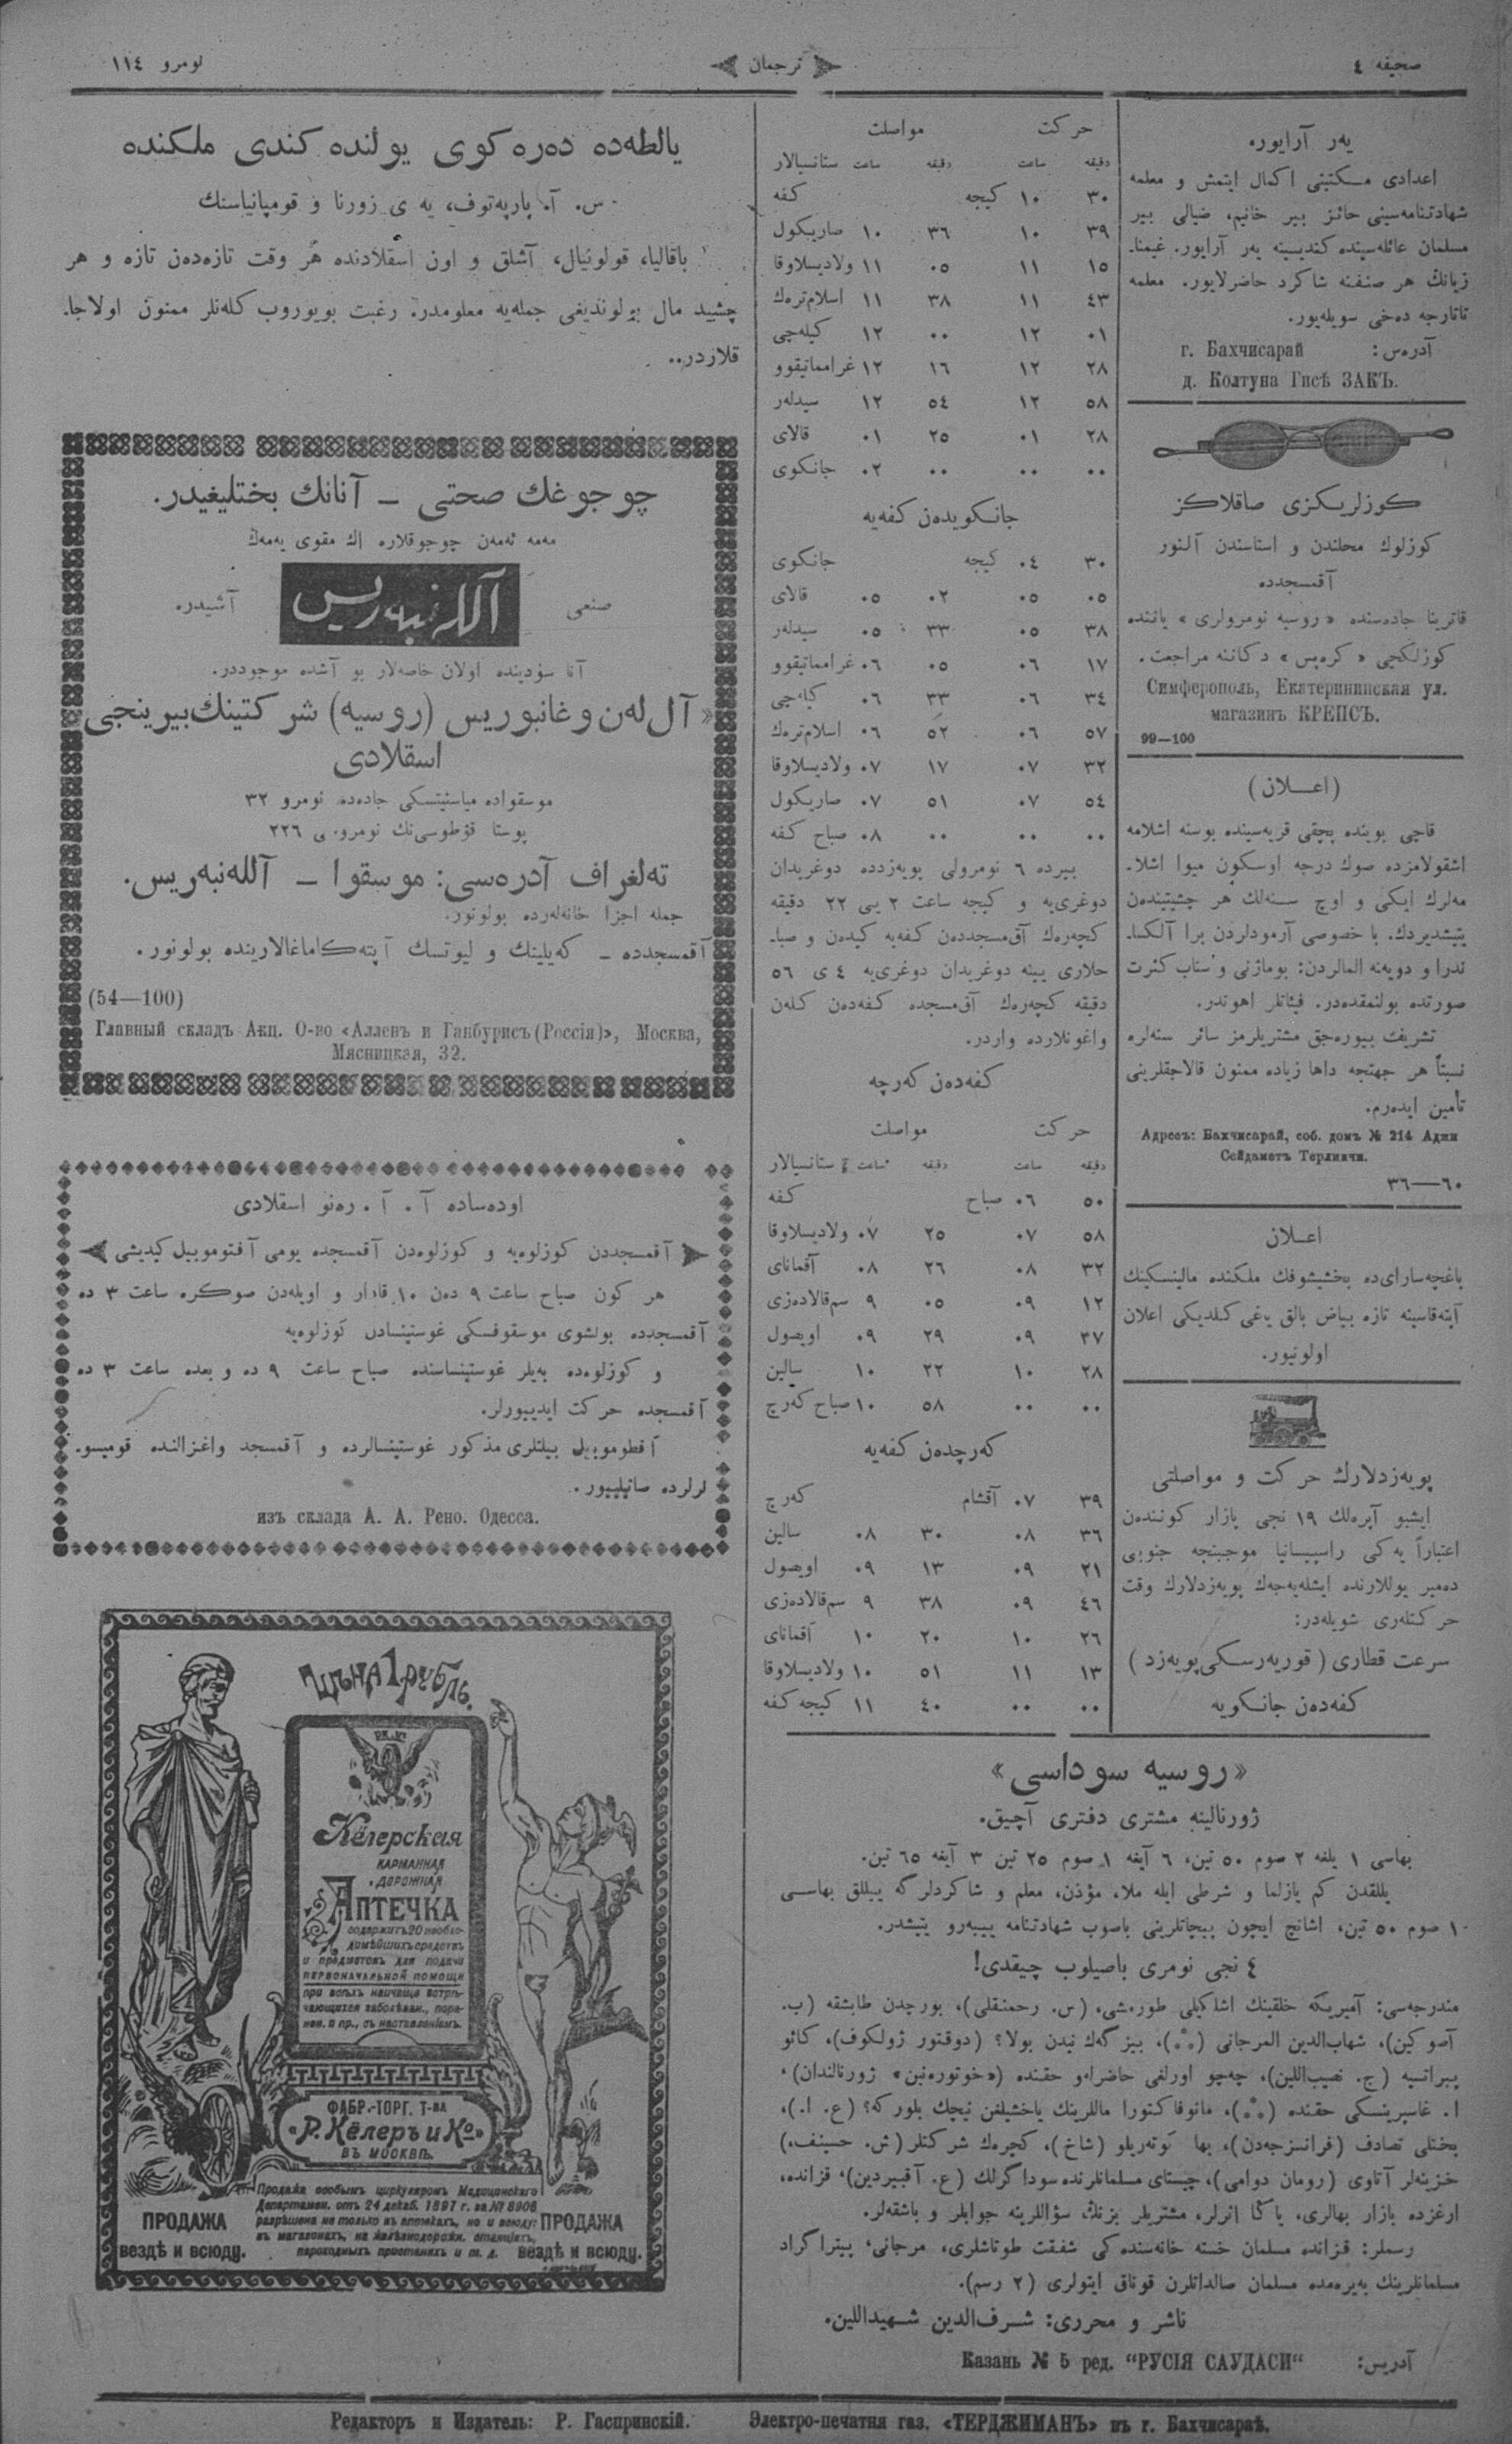 صحیفه ٤
ترجمان
نومرو ١١٤
یەر آرایوره
اعدادی مـکتبنی اکمال ایتمش و معلمه
شهادتنامەسینی حائـز بیر خانیم، ضیالی بیر
مسلمان عائلەسینده کندیسینه یەر آرایور. غیمنا-
زیانڭ هر صنفنه شاکرد حاضرلایور. معلمه
تاتارجه دەخی سویلەیور.
آدرەس: г. Бахчисарай
д. Колтуна Гисѣ ЗАКЪ.
کوزلریـکزی صاقلاکز
کوزلوك محلندن و استاسندن آلنور
آقمسجدده
قاترینا جادەسنده «روسیه نومرولری» یاننده
کوزلکجی «کرەپس» دکاننه مراجعت.
Симферополь, Екатерининская ул.
магазинъ КРЕПСЪ.
99—100
(اعـــلان)
قاچی بوینده پچقی قریەسینده بوسنه اشلامه
اشقولامزده صوك درجه اوسکون میوا اشلا-
مەلرك ایکی و اوچ سـنەلك هر چشیتیندەن
یتیشدیردك. با خصوصی آرموداردن برا آلکسا-
ندرا و دویەنه المالردن: بوماژنی و سناب کثرت
صورتده بولنمقدەدر. فیئاتلر اهوندر.
تشریف بیورەجق مشتریلرمز سائر سنەلره
نسبتاً هر جهتجه داها زیاده ممنون قالاجقلرینی
تأمین ایدەرم.
Адресъ: Бахчисарай, соб. домъ № 214 Аджи
Сейдаметъ Терликчи.
٦٠—٣٦
اعـلان
باغچەسارایده بخشیشوفك ملکنده مالینسکینك
آپتەقاسینه تازه بیاض بالق یاغی کـلدیکی اعلان
اولونیور.
پویەزدلارك حرکت و مواصلتی
ایشبو آپرەلك ١٩ نجی پازار کونندەن
اعتباراً یەکی راسپیسانیا موجبنجه جنوبی
دەمیر یوللارنده ایشلەیەجەك پویەزدلارك وقت
حرکتلەری شویلەدر:
سرعت قطاری (قوریەرسـکی پویەزد)
کفەدەن جانکویه
حرکت مواصلت
دقیقه ساعت دقیقه ساعت ستانسیالار
٣٠ ١٠ کیجه کفه
٣٩ ١٠ ٣٦ ١٠ صاریکول
١٥ ١١ ٠٥ ١١ ولادیسلاوقا
٤٣ ١١ ٣٨ ١١ اسلام‌ترەك
٠١ ١٢ ٠٠ ١٢ کیلەجی
٢٨ ١٢ ١٦ ١٢ غراماتیقوو
٥٨ ١٢ ٥٤ ١٢ سیدلەر
٢٨ ٠١ ٢٥ ٠١ قالای
٠٠ ٠٠ ٠٠ ٠٢ جانکوی
جانـکویدەن کفەیه
٣٠ ٠٤ کیجه جانکوی
٠٥ ٠٥ ٠٢ ٠٥ قالای
٣٨ ٠٥ ٣٣ ٠٥ سیدلەر
١٧ ٠٦ ٠٥ ٠٦ غراماتیقوو
٣٤ ٠٦ ٣٣ ٠٦ کیلەجی
٥٧ ٠٦ ٥٢ ٠٦ اسلام‌ترەك
٣٢ ٠٧ ١٧ ٠٧ ولادیسلاوقا
٥٤ ٠٧ ٥١ ٠٧ صاریکول
٠٠ ٠٠ ٠٠ ٠٨ صباح کفه
بیرده ٦ نومرولی پویەزدده دوغریدان
دوغری‌یه و کیجه ساعت ٢ یی ٢٢ دقیقه
کچەرەك آق‌مسجددەن کفەیه کیدەن و صبا-
حلاری یینه دوغریدان دوغری‌یه ٤ ی ٥٦
دقیقه کچەرەك آق‌مسجده کفەدەن کلەن
واغونلارده واردر.
کفەدەن کەرچه
حرکت مواصلت
دقیقه ساعت دقیقه ساعت ستانسیالار
٥٠ ٠٦ صباح کفه
٥٨ ٠٧ ٢٥ ٠٧ ولادیسلاوقا
٣٢ ٠٨ ٢٦ ٠٨ آقمانای
١٢ ٠٩ ٠٥ ٩ سم‌قالادەزی
٣٧ ٠٩ ٢٩ ٠٩ اویصول
٢٨ ١٠ ٢٢ ١٠ سالین
٠٠ ٠٠ ٥٨ ١٠ صباح کەرچ
کەرچدەن کفەیه
٣٩ ٠٧ آقشام کەرچ
٣٦ ٠٨ ٣٠ ٠٨ سالین
٢١ ٠٩ ١٣ ٠٩ اویصول
٤٦ ٠٩ ٣٨ ٩ سم‌قالادەزی
٢٦ ١٠ ٢٠ ١٠ آقمانای
١٣ ١١ ٥١ ١٠ ولادیسلاوقا
٠٠ ٠٠ ٤٠ ١١ کیجه کفه
«روسیه سوداسی»
ژورنالینه مشتری دفتری آچیق.
بهاسی ١ یلغه ٢ صوم ٥٠ تین، ٦ آیغه ١ صوم ٢٥ تین ٣ آیغه ٦٥ تین.
یللقدن کم یازلما و شرطی ایله ملا، مؤذن، معلم و شاکردلرگه ییللق بهاسـی
١ صوم ٥٠ تین، اشانچ ایچون پیچاتلرینی باصوب شهادتنامه ییبەرو یتیشدر.
٤ نجی نومری باصیلوب چیقدی!
مندرجەسی: آمیریکه خلقینك اشلکلی طورمشی، (س. رحمنقلی)، بورچدن طابشقه (ب.
آصوکین)، شهاب‌الدین المرجانی (**)، بیزگەك نیدن بولا؟ (دوقتور ژولکوف)، کائو
پیراتسیه (ج. نصیب‌اللین)، چەچو اورلغی حاضرلەو حقنده («خوتورەنین» ژورنالندان)،
ا. غاسپرینسکی حقنده (**)، مانوفاکتورا ماللرینك یاخشیلغن نیچك بلورگە؟ (ع. ا.)،
بختلی تصادف (فرانسزجەدن)، بها کوتەریلو (شاخ)، کچرەك شرکتلر (ش. حسینف،)
خزینەلر آتاوی (رومان دوامی)، چیستای مسلمانلرنده سوداگرلك (ع. آقبیردین)، قزانده،
ارغزده بازار بهالری، یاڭا اثرلر، مشتریلر بزنڭ سؤاللرینه جوابلر و باشقەلر.
رسملر: قزانده مسلمان خسته خانەسنده کی شفقت طوتاشلری، مرجانی، پیتراگراد
مسلمانلرینك بەیرەمده مسلمان صالداتلرن قوناق ایتولری (٢ رسم).
ناشر و محرری: شـرف‌الدین شـهیداللین.
آدریس: Казань № 5 ред. “РУСІЯ САУДАСИ“
یالطەده دەرەکوی یولنده کندی ملکنده
س. آ. پارپەتوف، یه ی زورنا و قومپانیاسنك
باقالیا، قولونیال، آشلق و اون اسقلادنده هر وقت تازەدەن تازه و هر
چشید مال بولوندیغی جملەیه معلومدر. رغبت بویوروب کلەنلر ممنون اولاجا-
قلاردر..
چوجوغك صحتی — آنانك بختلیغیدر.
مەمه ئەمەن چوجوقلاره اڭ مقوی یەمەك
صنعی آللەنبەریس آشیدر.
آنا سؤدینده اولان خاصەلار بو آشده موجوددر.
«آل‌لەن وغانبوریس (روسیه) شرکتینك بیرینجی
اسقلادی
موسقواده میاسنیتسکی جادەده نومرو ٣٢
پوستا قۇطوسی‌نك نومروی ٢٢٦
تەلغراف آدرەسی: موسقوا — آللەنبەریس.
جمله اجزا خانەلەرده بولونور.
آقمسجدده — کەیلینك و لیوتسك آپتەکاماغالارینده بولونور.
(54—100)
Главный складъ Акц. О-во «Алленъ и Ганбурисъ (Россія)», Москва,
Мясницкая, 32.
اودەساده آ. آ. رەنو اسقلادی
آقمسجددن کوزلوەیه و کوزلوەدن آقمسجده یومی آفتوموبیل کیدیشی
هر کون صباح ساعت ٩ دەن ١٠ قادار و اویلەدن صوڭره ساعت ٣ ده
آقمسجدده بولشوی موسقوفسکی غوستینسادن کوزلوەیه
و کوزلوەده بەیلر غوستینساسنده صباح ساعت ٩ ده و بعده ساعت ٣ ده
آقمسجده حرکت ایدییورلر.
آفطوموبیل بیلتلری مذکور غوستینسالرده و آقمسجد واغزالنده قومیسو-
لرلرده صاتیلییور.
изъ склада А. А. Рено. Одесса.
ЦѢНА 1 РУБЛЬ.
Кёлерская
КАРМАННАЯ
и ДОРОЖНАЯ
АПТЕЧКА
содержитъ 20 необхо-
димѣйшихъ средствъ
и предметовъ для подачи
ПЕРВОНАЧАЛЬНОЙ ПОМОЩИ
при всѣхъ наичаще встрѣ-
чающихся заболѣван., пора-
нен. и пр., съ наставленіемъ.
ФАБР.-ТОРГ. Т-ва
«Р. Кёлеръ и Ко»
ВЪ МОСКВѢ.
Продажа особымъ циркуляромъ Медицинскаго
Департамен. отъ 24 декаб. 1897 г. за № 8906
разрѣшена не только въ аптекахъ, но и всюду:
въ магазинахъ, на желѣзнодорожн. станціяхъ,
пароходныхъ пристаняхъ и т. д.
ПРОДАЖА
вездѣ и всюду.
ПРОДАЖА
вездѣ и всюду.
Редакторъ и Издатель: Р. Гаспринскій.
Электро-печатня газ. «ТЕРДЖИМАНЪ» въ г. Бахчисараѣ.